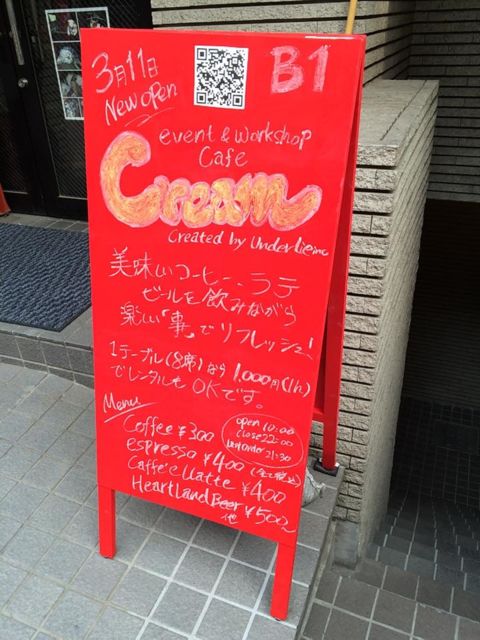 3月11日
New open
B1
event & workshop
Cafe
Cream
Created by Underline inc
美味しいコーヒー、ラテ
ビールを飲みながら
楽しい「事」でリフレッシュ!
1テーブル(8席)なら1,000円(1h)
でレンタルもOKです。
Menu
Coffee ¥300
espresso ¥400(全て税込)
Caffe'e Latte ¥400
Heartland Beer ¥500~
他
open 10:00
close 22:00
Last order 21:30